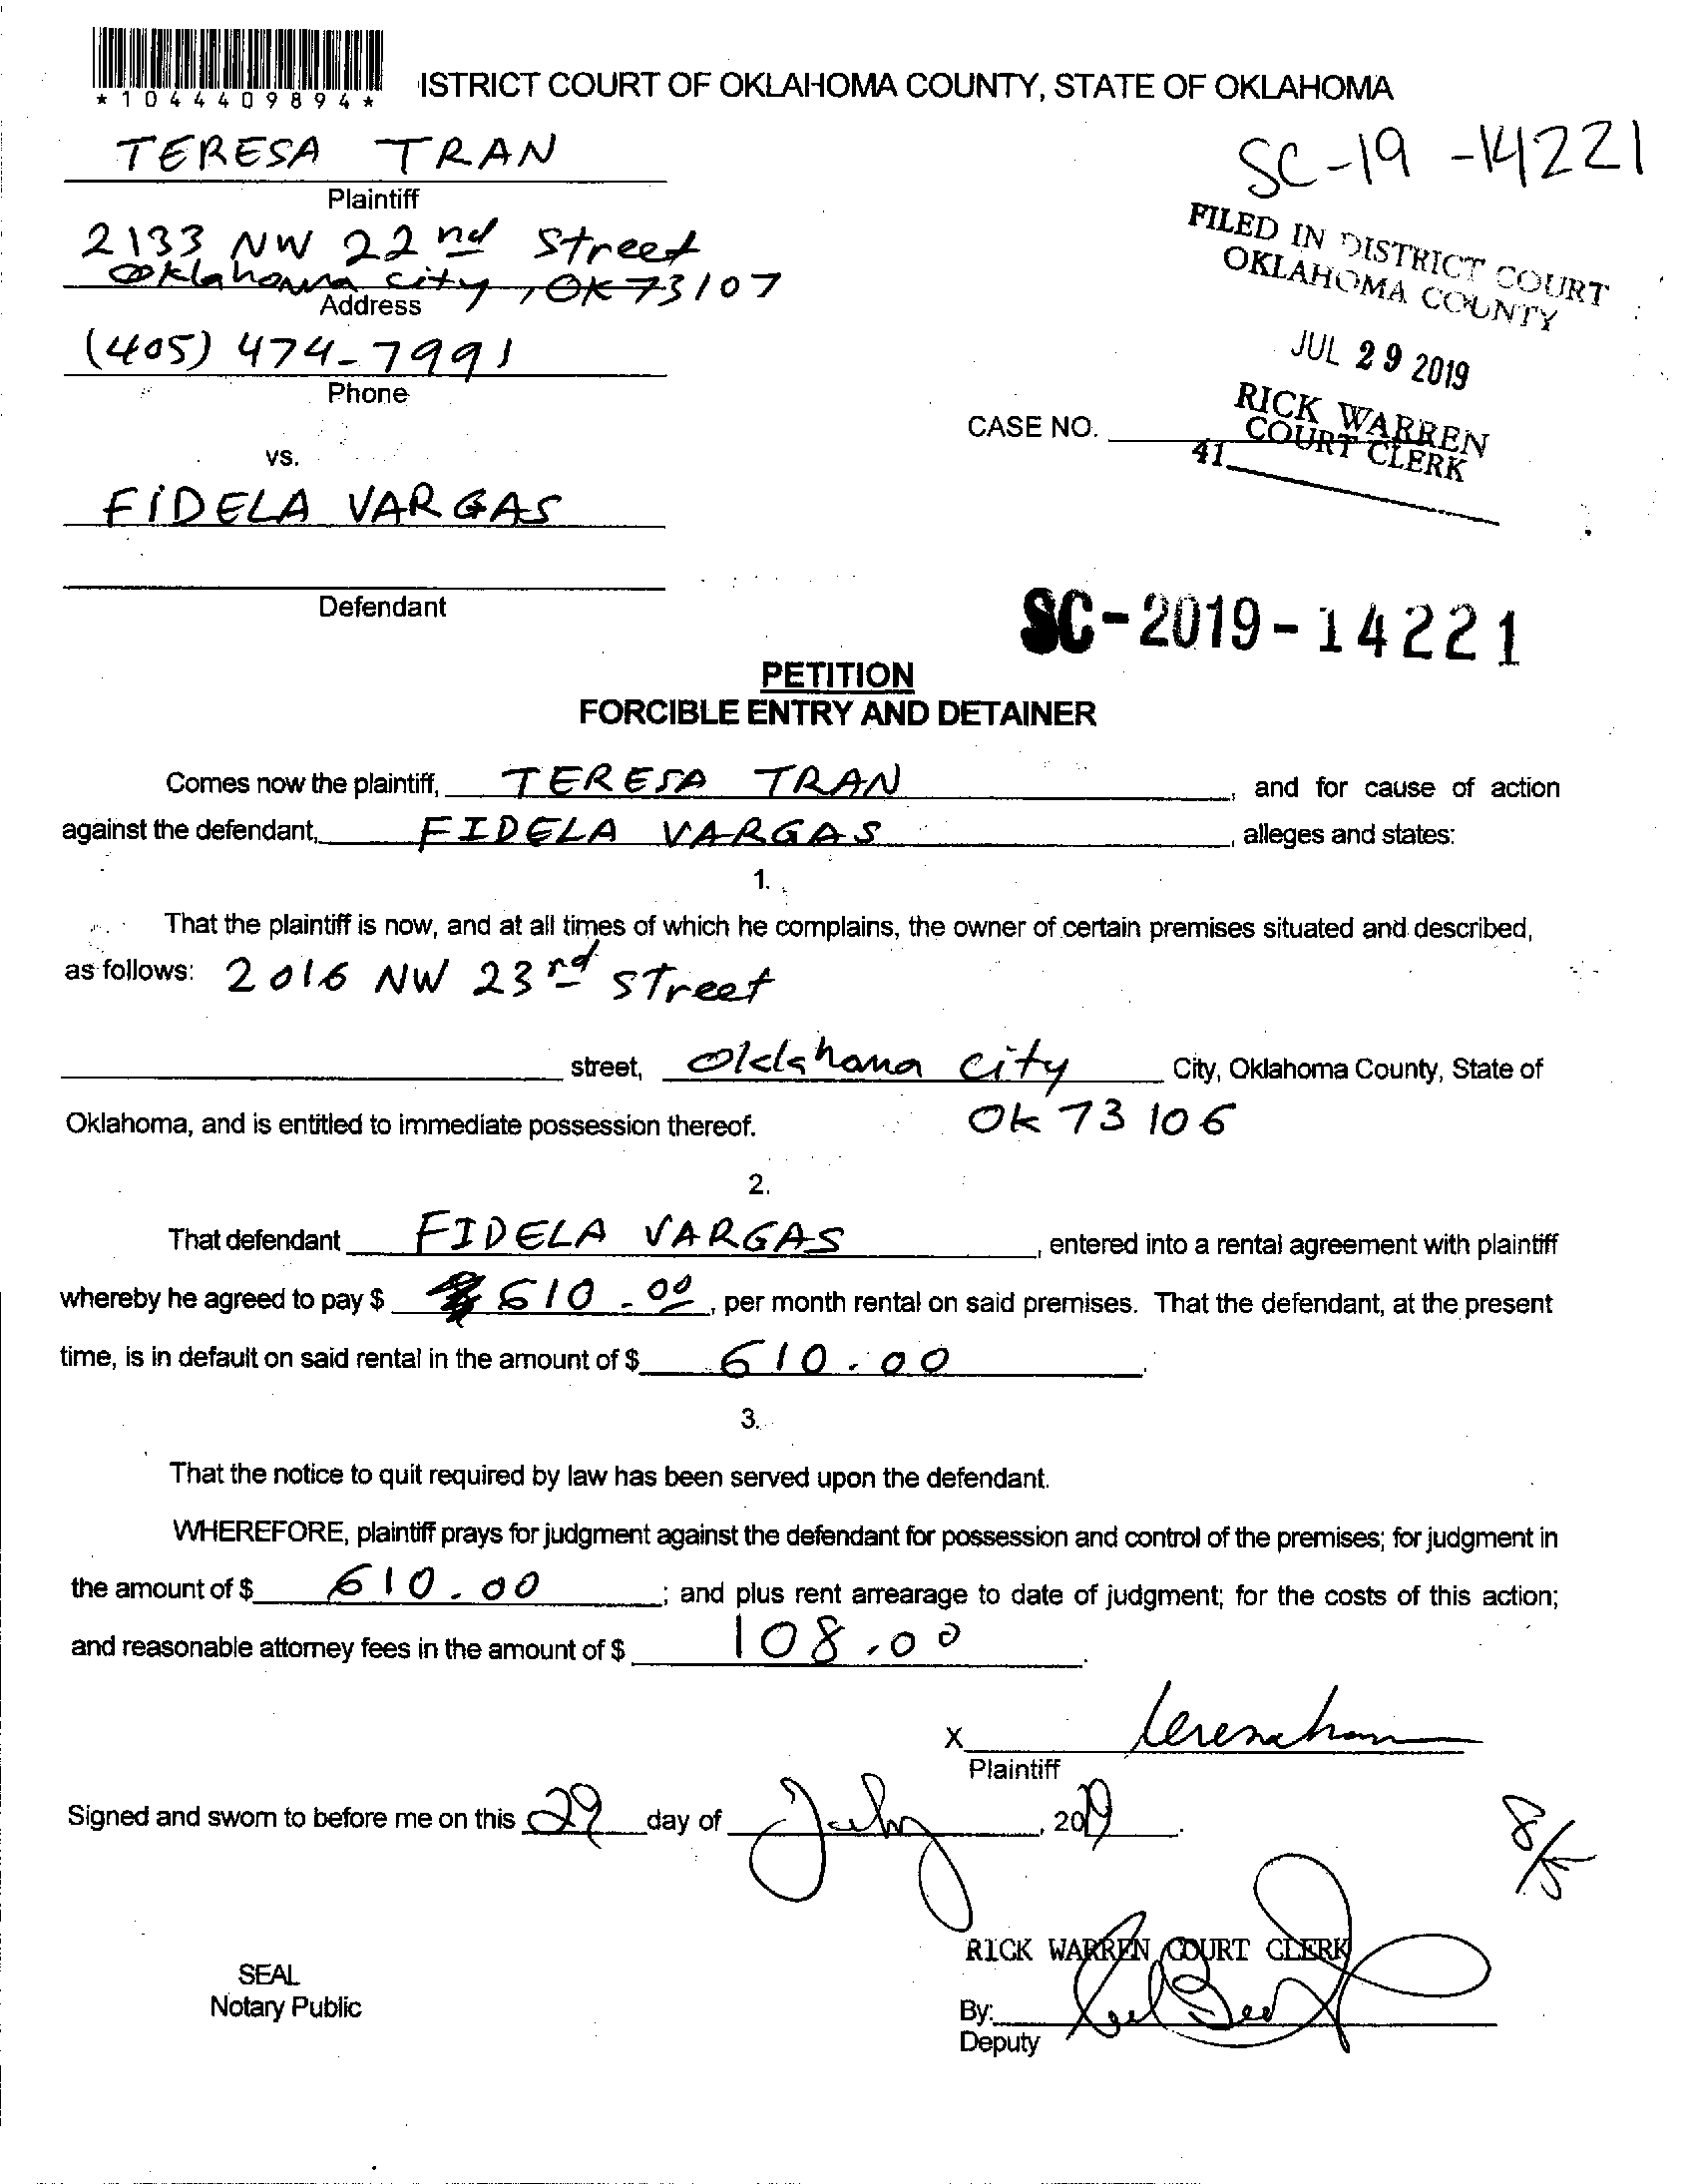 *1044409894*
ISTRICT COURT OF OKLAHOMA COUNTY, STATE OF OKLAHOMA
TERESA TRAN
Plaintiff
SC-19-14221
2133 NW 22nd Street
Oklahoma city, OK 73107
Address
FILED IN DISTRICT COURT
OKLAHOMA COUNTY
(405) 474-7991
Phone
JUL 29 2019
RICK WARREN
COURT CLERK
CASE NO.
41
vs.
FIDELA VARGAS
Defendant
SC-2019-14221
PETITION
FORCIBLE ENTRY AND DETAINER
Comes now the plaintiff, TERESA TRAN, and for cause of action
against the defendant, FIDELA VARGAS, alleges and states:
1.
That the plaintiff is now, and at all times of which he complains, the owner of certain premises situated and described,
as follows: 2016 NW 23rd STreet
street, Oklahoma city City, Oklahoma County, State of
Oklahoma, and is entitled to immediate possession thereof. OK 73106
2.
That defendant FIDELA VARGAS, entered into a rental agreement with plaintiff
whereby he agreed to pay $ 610.00, per month rental on said premises. That the defendant, at the present
time, is in default on said rental in the amount of $ 610.00.
3.
That the notice to quit required by law has been served upon the defendant.
WHEREFORE, plaintiff prays for judgment against the defendant for possession and control of the premises; for judgment in
the amount of $ 610.00; and plus rent arrearage to date of judgment; for the costs of this action;
and reasonable attorney fees in the amount of $ 108.00.
X
Plaintiff
Signed and sworn to before me on this 29 day of July, 2019.
8/5
RICK WARREN COURT CLERK
SEAL
Notary Public
By:
Deputy